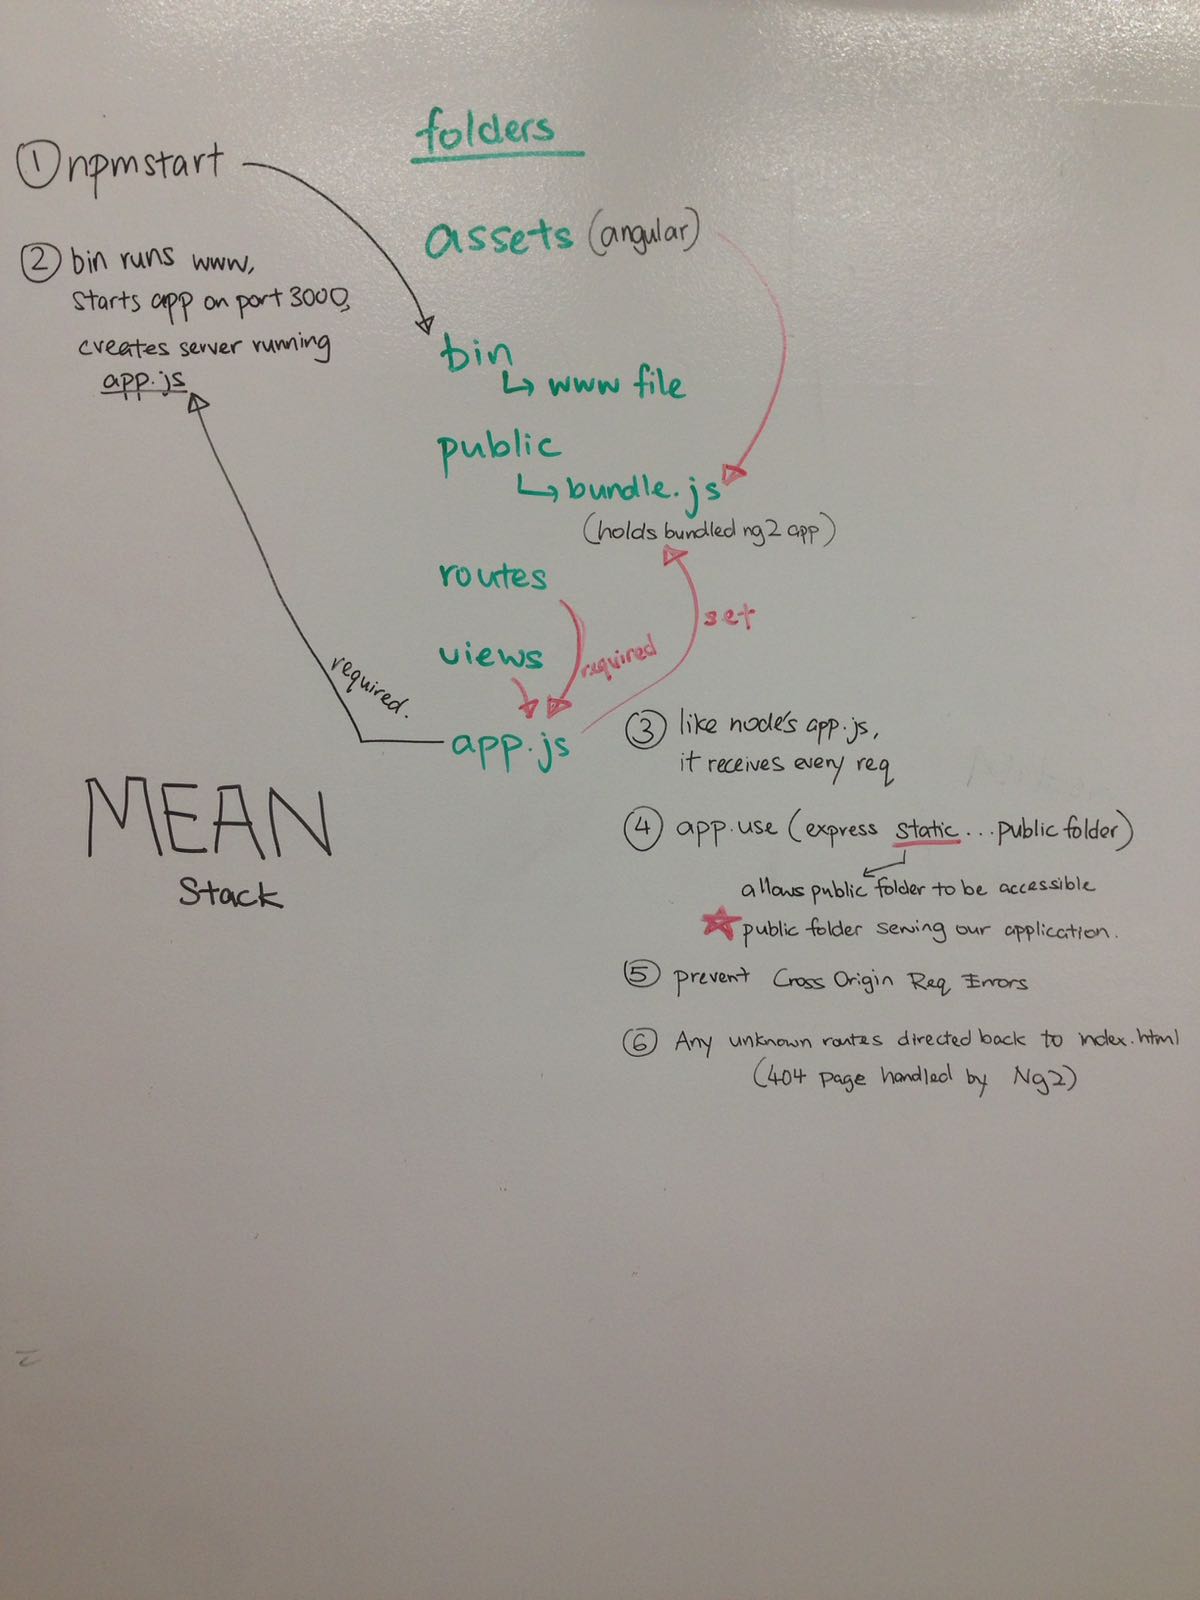 folders
① npm start
assets (angular)
② bin runs www,
starts app on port 3000,
creates server running
app.js
bin
↳ www file
public
↳ bundle.js
(holds bundled ng2 app)
routes
set
views
required
required.
app.js
③ like node's app.js,
it receives every req
MEAN
Stack
④ app.use (express static... public folder)
allows public folder to be accessible
★ public folder serving our application.
⑤ prevent Cross Origin Req Errors
⑥ Any unknown routes directed back to index.html
(404 page handled by Ng2)